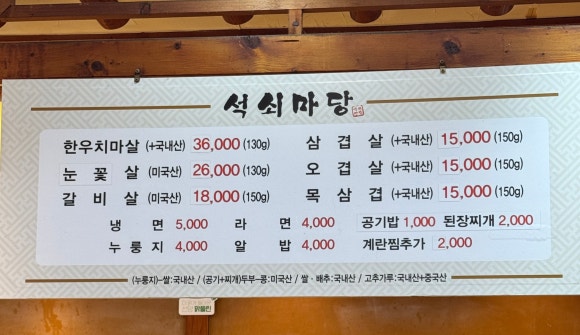 석쇠마당
한우치마살 (+국내산) 36,000 (130g) 삼겹살 (+국내산) 15,000 (150g)
눈꽃살 (미국산) 26,000 (130g) 오겹살 (+국내산) 15,000 (150g)
갈비살 (미국산) 18,000 (150g) 목삼겹 (+국내산) 15,000 (150g)
냉면 5,000 라면 4,000 공기밥 1,000 된장찌개 2,000
누룽지 4,000 알밥 4,000 계란찜추가 2,000
(누룽지)-쌀:국내산 / (공기+찌개)두부-콩:미국산 / 쌀·배추:국내산 / 고추가루:국내산+중국산
맑을린